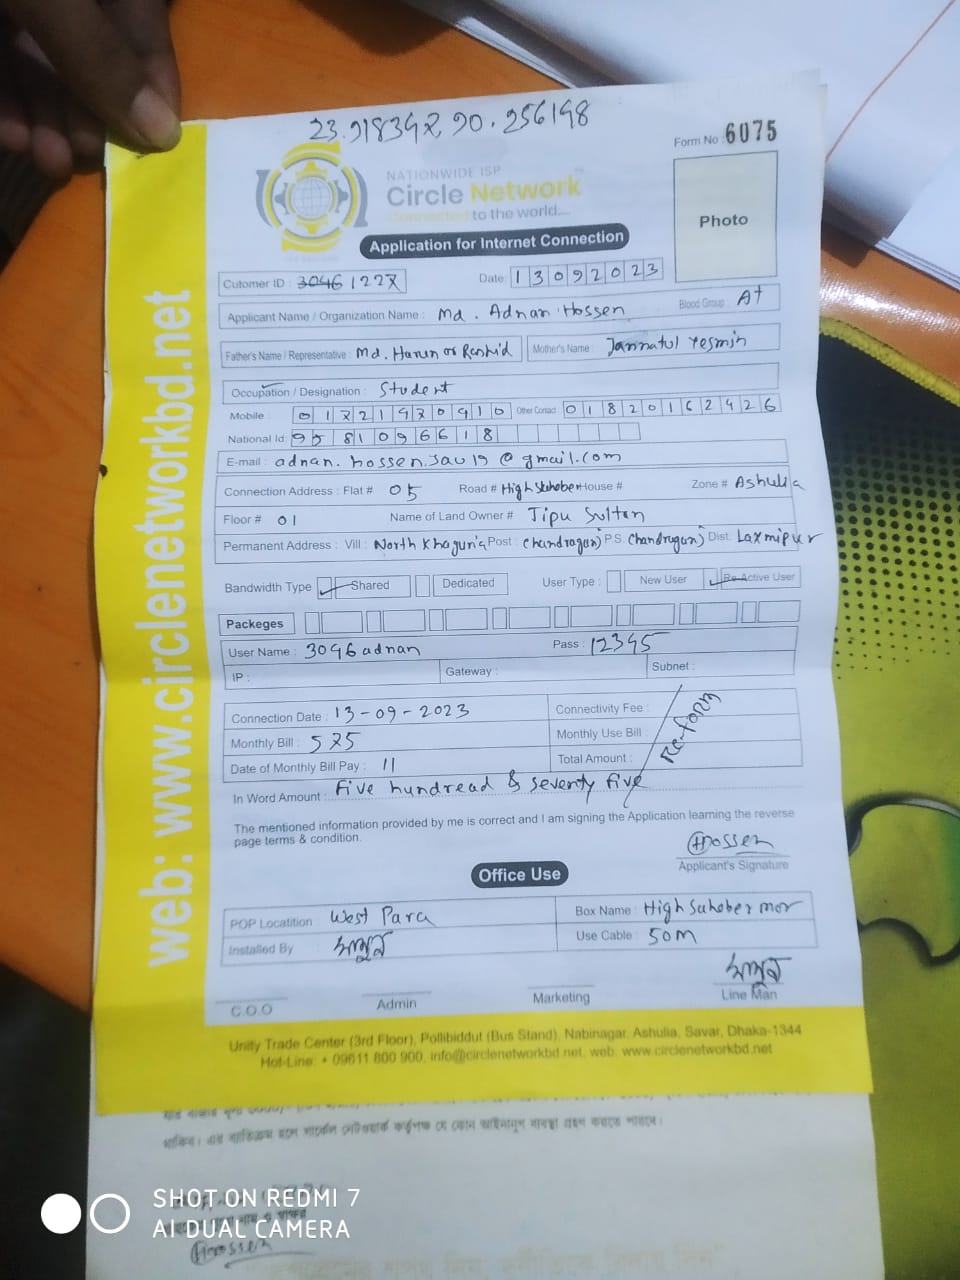 23.918342 90.256148
Form No : 6075
NATIONWIDE ISP
Circle Network
Connected to the world....
Photo
Application for Internet Connection
Cutomer ID : 3046 1227
Date: 13092023
Applicant Name / Organization Name : Md. Adnan Hossen Blood Group: A+
Father's Name / Representative : Md. Harun or Rashid Mother's Name : Jannatul Yesmin
Occupation / Designation : Student
Mobile : 01721970910 Other Contact 01820162426
National Id: 95 81096618
E-mail : adnan.hossen.sau19@gmail.com
Connection Address : Flat # 05 Road # High Sahober House # Zone # Ashulia
Floor # 01 Name of Land Owner # Tipu Sultan
Permanent Address : Vill: North Khaguria Post : Chandragonj P.S. Chandragonj Dist. Laxmipur
Bandwidth Type Shared Dedicated User Type : New User Re-Active User
Packeges
User Name : 3046adnan Pass : 12345
IP : Gateway : Subnet :
Connection Date : 13-09-2023 Connectivity Fee :
Monthly Bill : 575 Monthly Use Bill :
Date of Monthly Bill Pay : 11 Total Amount :
Re-form
In Word Amount : Five hundread & seventy five
The mentioned information provided by me is correct and I am signing the Application learning the reverse
page terms & condition.
Hossen
Applicant's Signature
Office Use
POP Locatition : West Para Box Name : High Sahober mor
Installed By : Use Cable : 50m
C.O.O Admin Marketing Line Man
Unity Trade Center (3rd Floor), Pollibiddut (Bus Stand), Nabinagar, Ashulia, Savar, Dhaka-1344
Hot-Line: + 09611 800 900, info@circlenetworkbd.net, web: www.circlenetworkbd.net
web: www.circlenetworkbd.net
থাকিব। এর ব্যতিক্রম হলে সার্কেল নেটওয়ার্ক কর্তৃপক্ষ যে কোন আইনানুগ ব্যবস্থা গ্রহণ করতে পারবে।
Hossen
SHOT ON REDMI 7
AI DUAL CAMERA